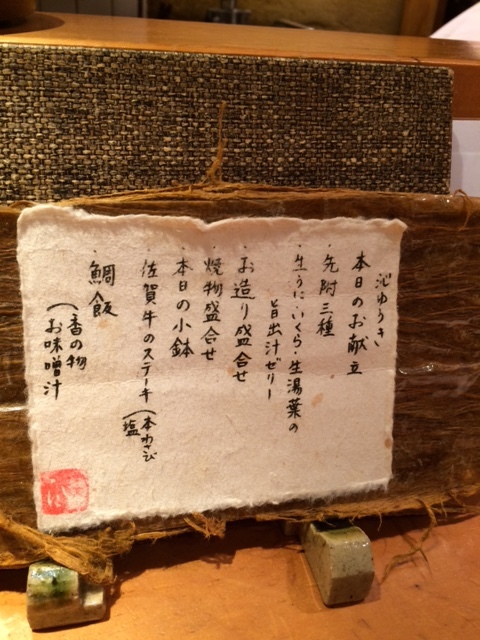 ゆうき
本日のお献立
・先附三種
・生うに・いくら・生湯葉の
旨出汁ゼリー
・お造り盛合せ
・焼物盛合せ
・本日の小鉢
・佐賀牛のステーキ(本わさび
塩
・鯛飯
(香の物
お味噌汁